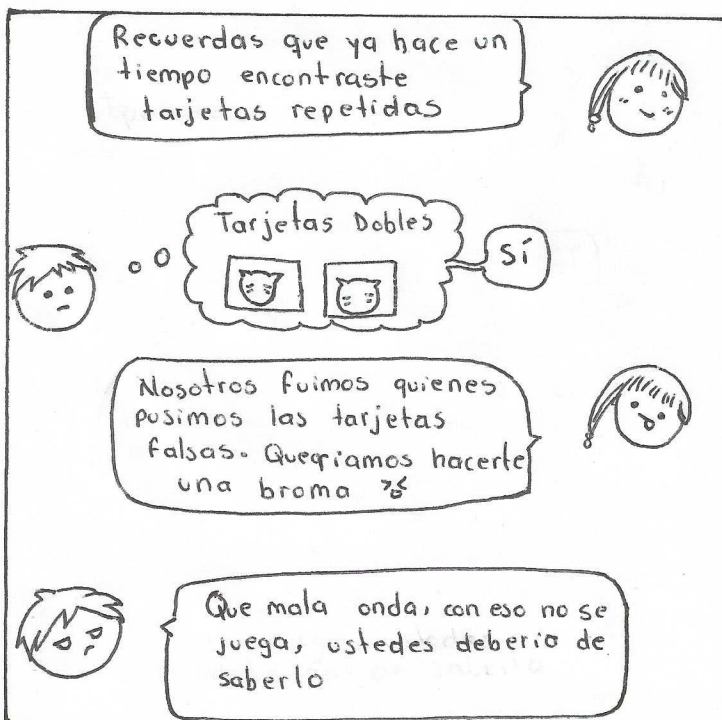 Recuerdas que ya hace un
tiempo encontraste
tarjetas repetidas
Tarjetas Dobles
Sí
Nosotros fuimos quienes
pusimos las tarjetas
falsas. Queriamos hacerte
una broma
Que mala onda, con eso no se
juega, ustedes deberio de
saberlo